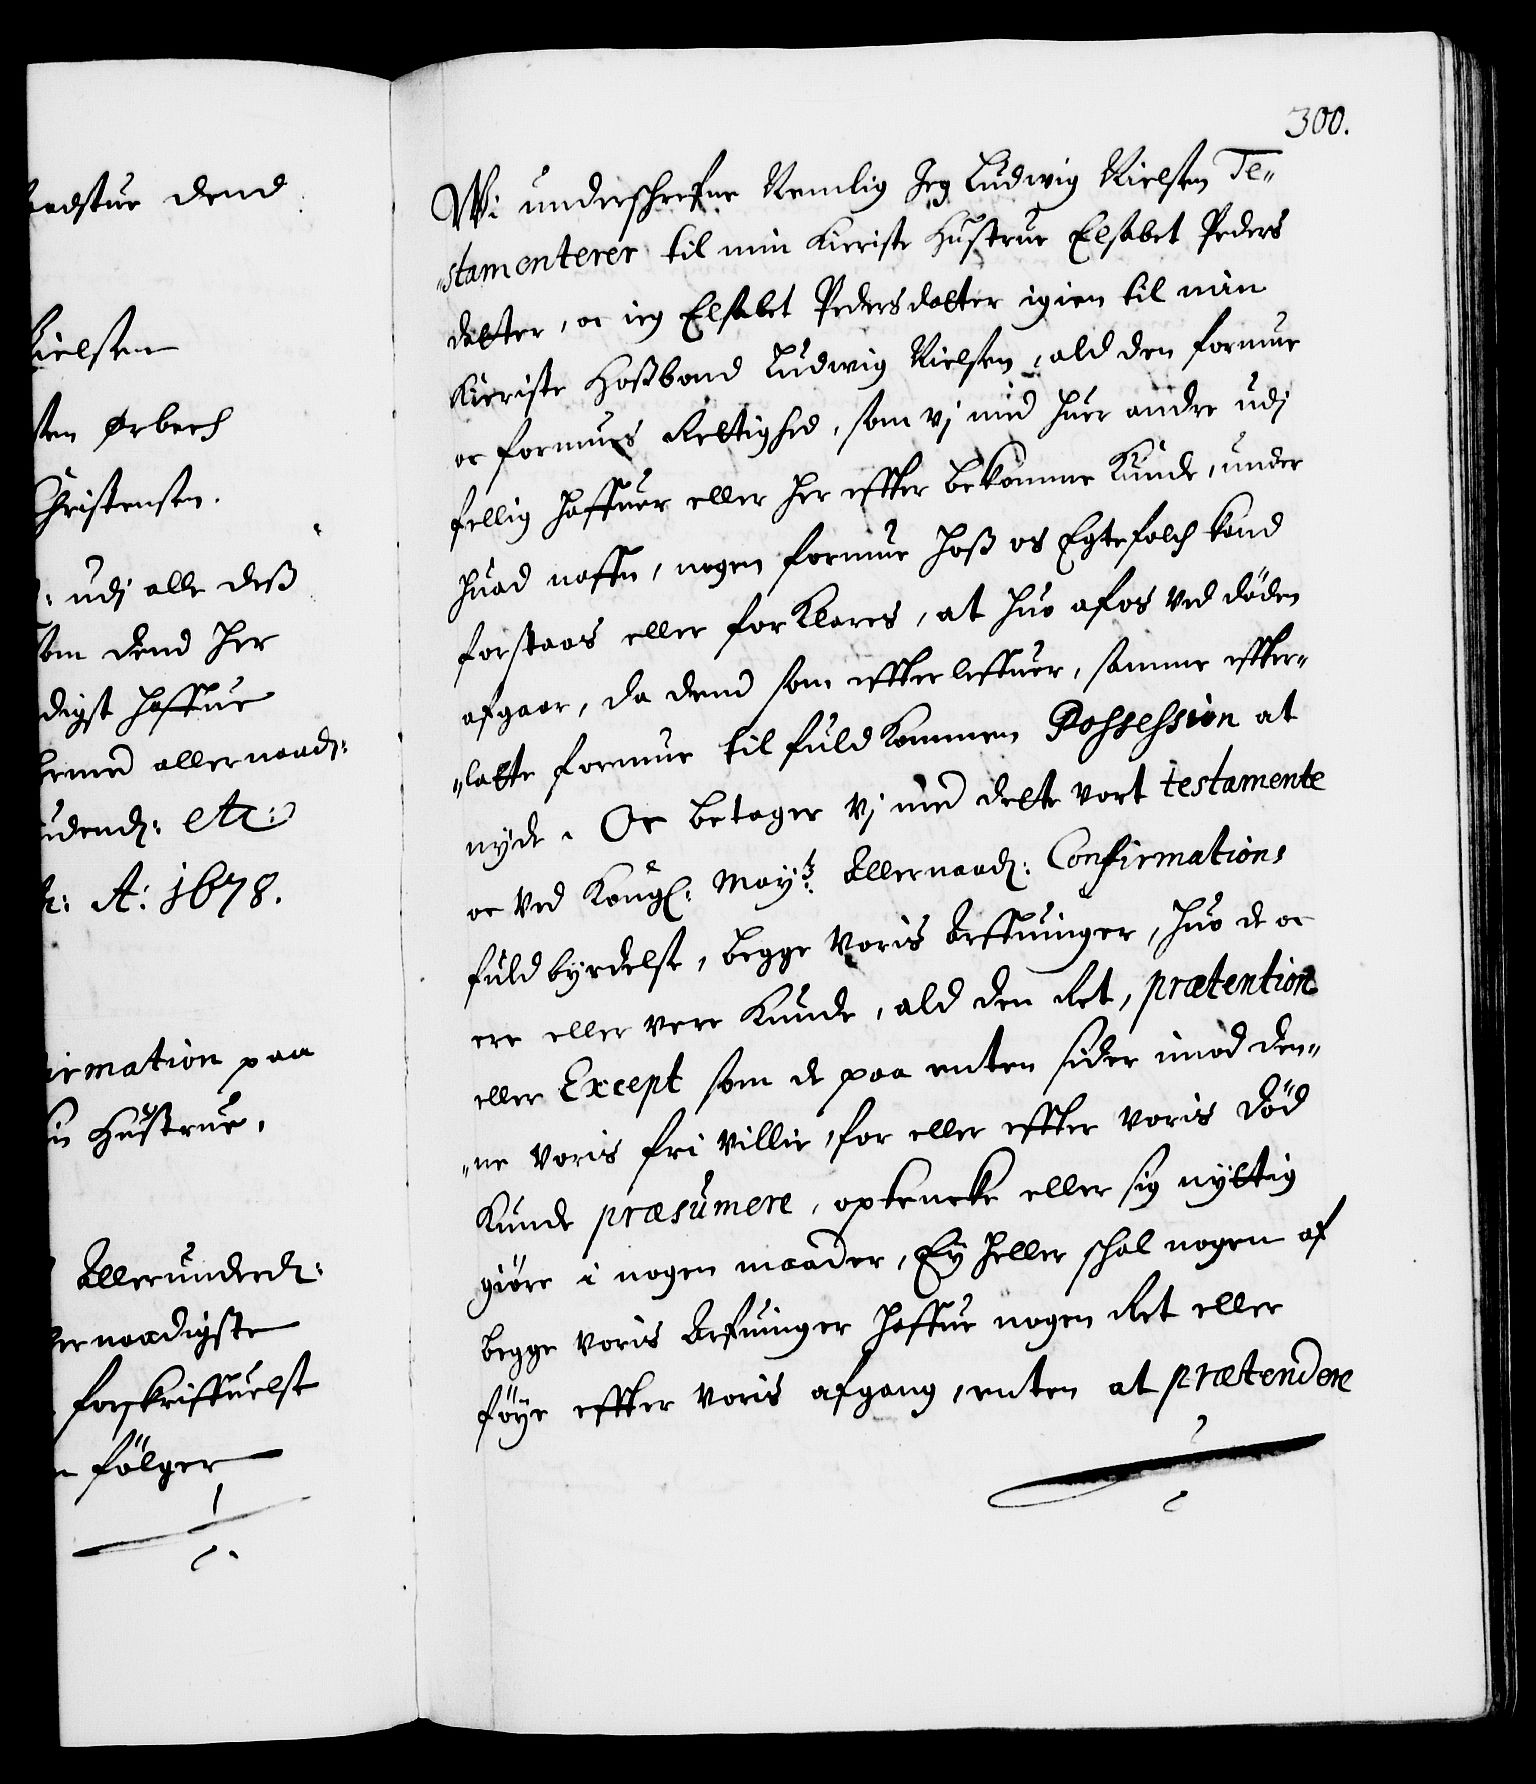 adstue dend
Nielsen
sten Ørbech
Christensen.
: udj alle dess
som dend her
digst haffue
hermed allernaad:
udend: etc:
A: 1678.
irmation paa
in Hustrue,
Allerunderd:
lernaadigste
forskriffuelse
n fölger
300.
Wi underschrefne Nemlig Jeg Ludwig Nielsen Te„
„stamenterer til min kieriste Hustrue Elsabet Peders
datter, oc ieg Elsabet Pedersdatter igien til min
kieriste Hossbond Ludwig Nielsen, ald den formue
oc formues Rettighed, som vj med huer andre udj
fellig haffuer eller her effter bekomme kunde, under
huad naffn, nogen formue hoss os Egtefolch kand
forstaas eller forklares, at huo af os ved döden
afgaar, da dend som effterleffuer, samme effter„
„latte formue til fuldkommen Possession at
nyde. Oc betager vj med dette vort testamente
oc ved Kongl: May:tz Allernaad: Confirmations
fuldbyrdelse, begge voris Arffuinger, huo de oc
ere eller vere kunde, ald den Ret, prætention
eller Except som de paa enten sider imod den„
„ne voris fri villie, for eller effter voris död
kunde præsumere, optencke eller sig nyttig
giöre i nogen maader, Ey heller schal nogen af
begge voris Arfuinger haffue nogen Ret eller
föye effter voris afgang, enten at prætendere